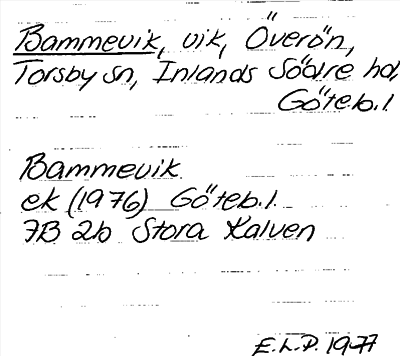 Bammevik, vik, Överön,
Torsby sn, Inlands Södre hd,
Göteb.l.
Bammevik
ek (1976) Göteb.l.
7B 2b Stora Kalven
E.L.P. 1977